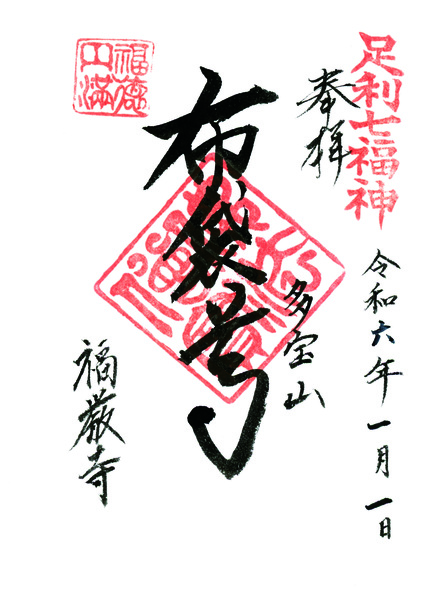 足利七福神
奉拝
令和六年一月一日
多宝山
布袋尊
福徳
円満
福厳寺